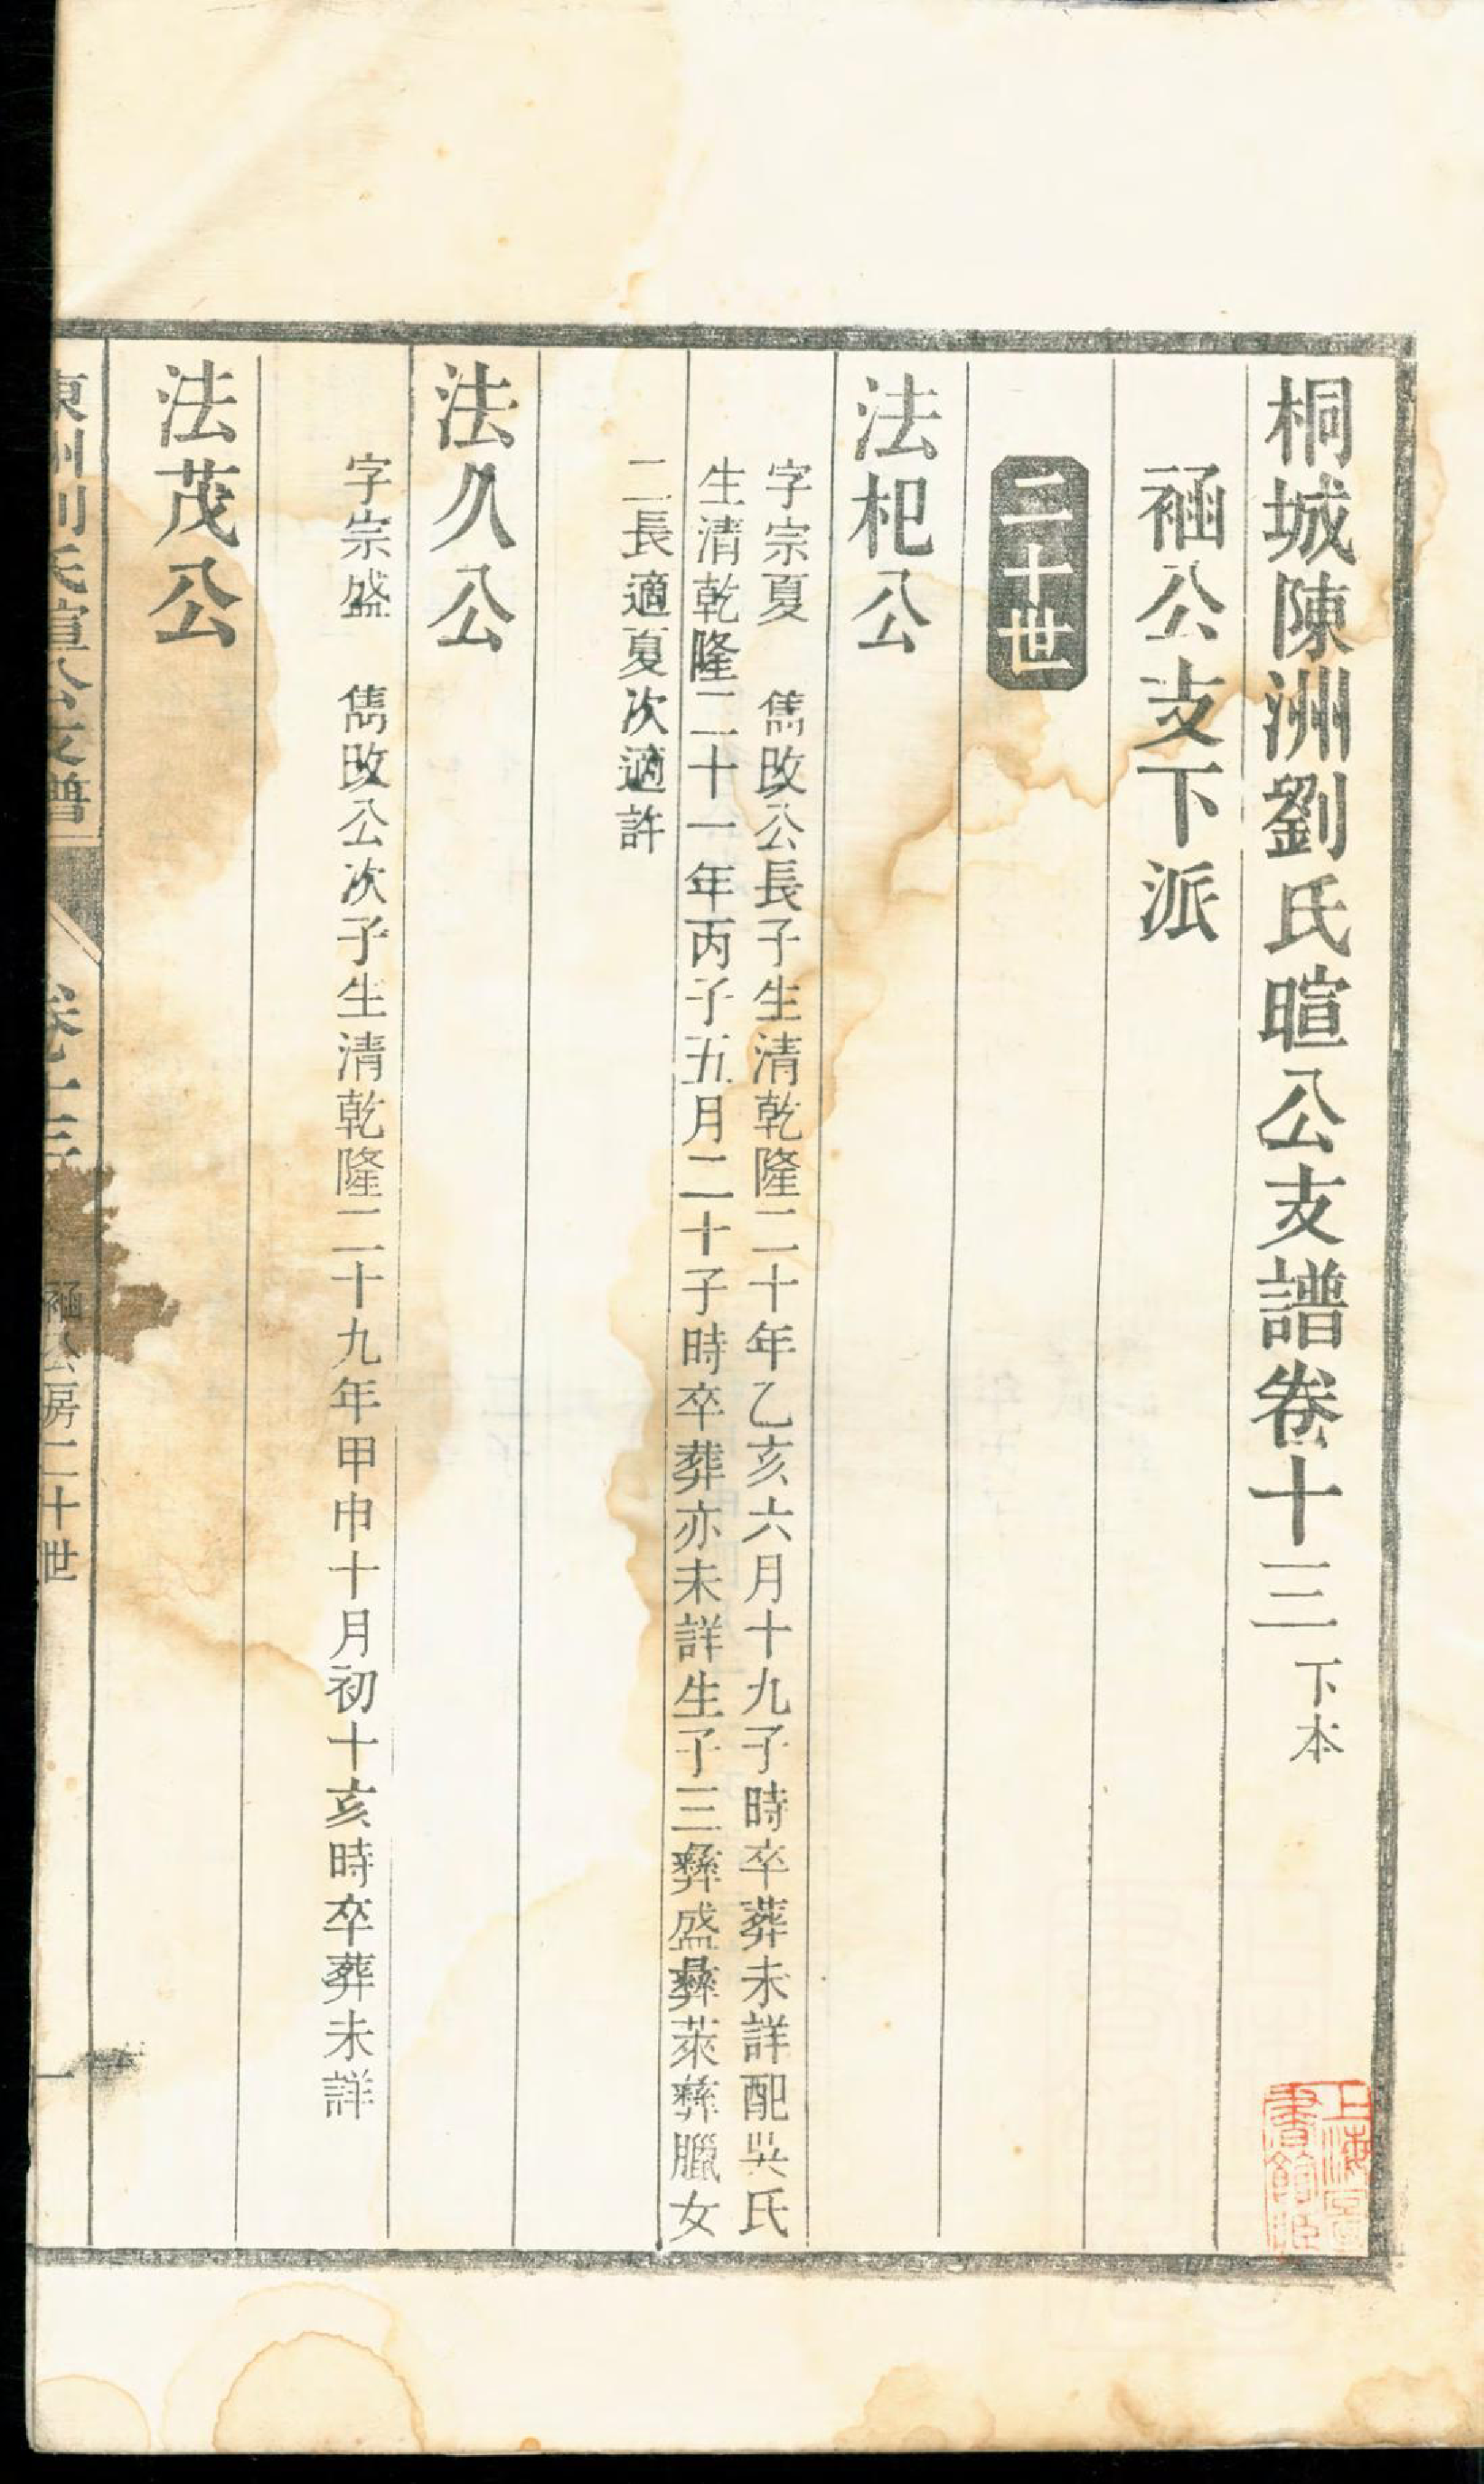 桐城陳洲劉氏暄公支譜卷十三下本
䄂公支下派
二十世
法杞公
字宗夏　儁改公長子生清乾隆二十年乙亥六月十九子時卒葬未詳配吳氏
生清乾隆二十一年丙子五月二十子時卒葬亦未詳生子三彝盛彝萊彝臘女
二長適夏次適許
法久公
字宗盛　儁改公次子生清乾隆二十九年甲申十月初十亥時卒葬未詳
法茂公
陳洲劉氏暄公支譜　卷十三　公房二十世　一
上海圖書館藏